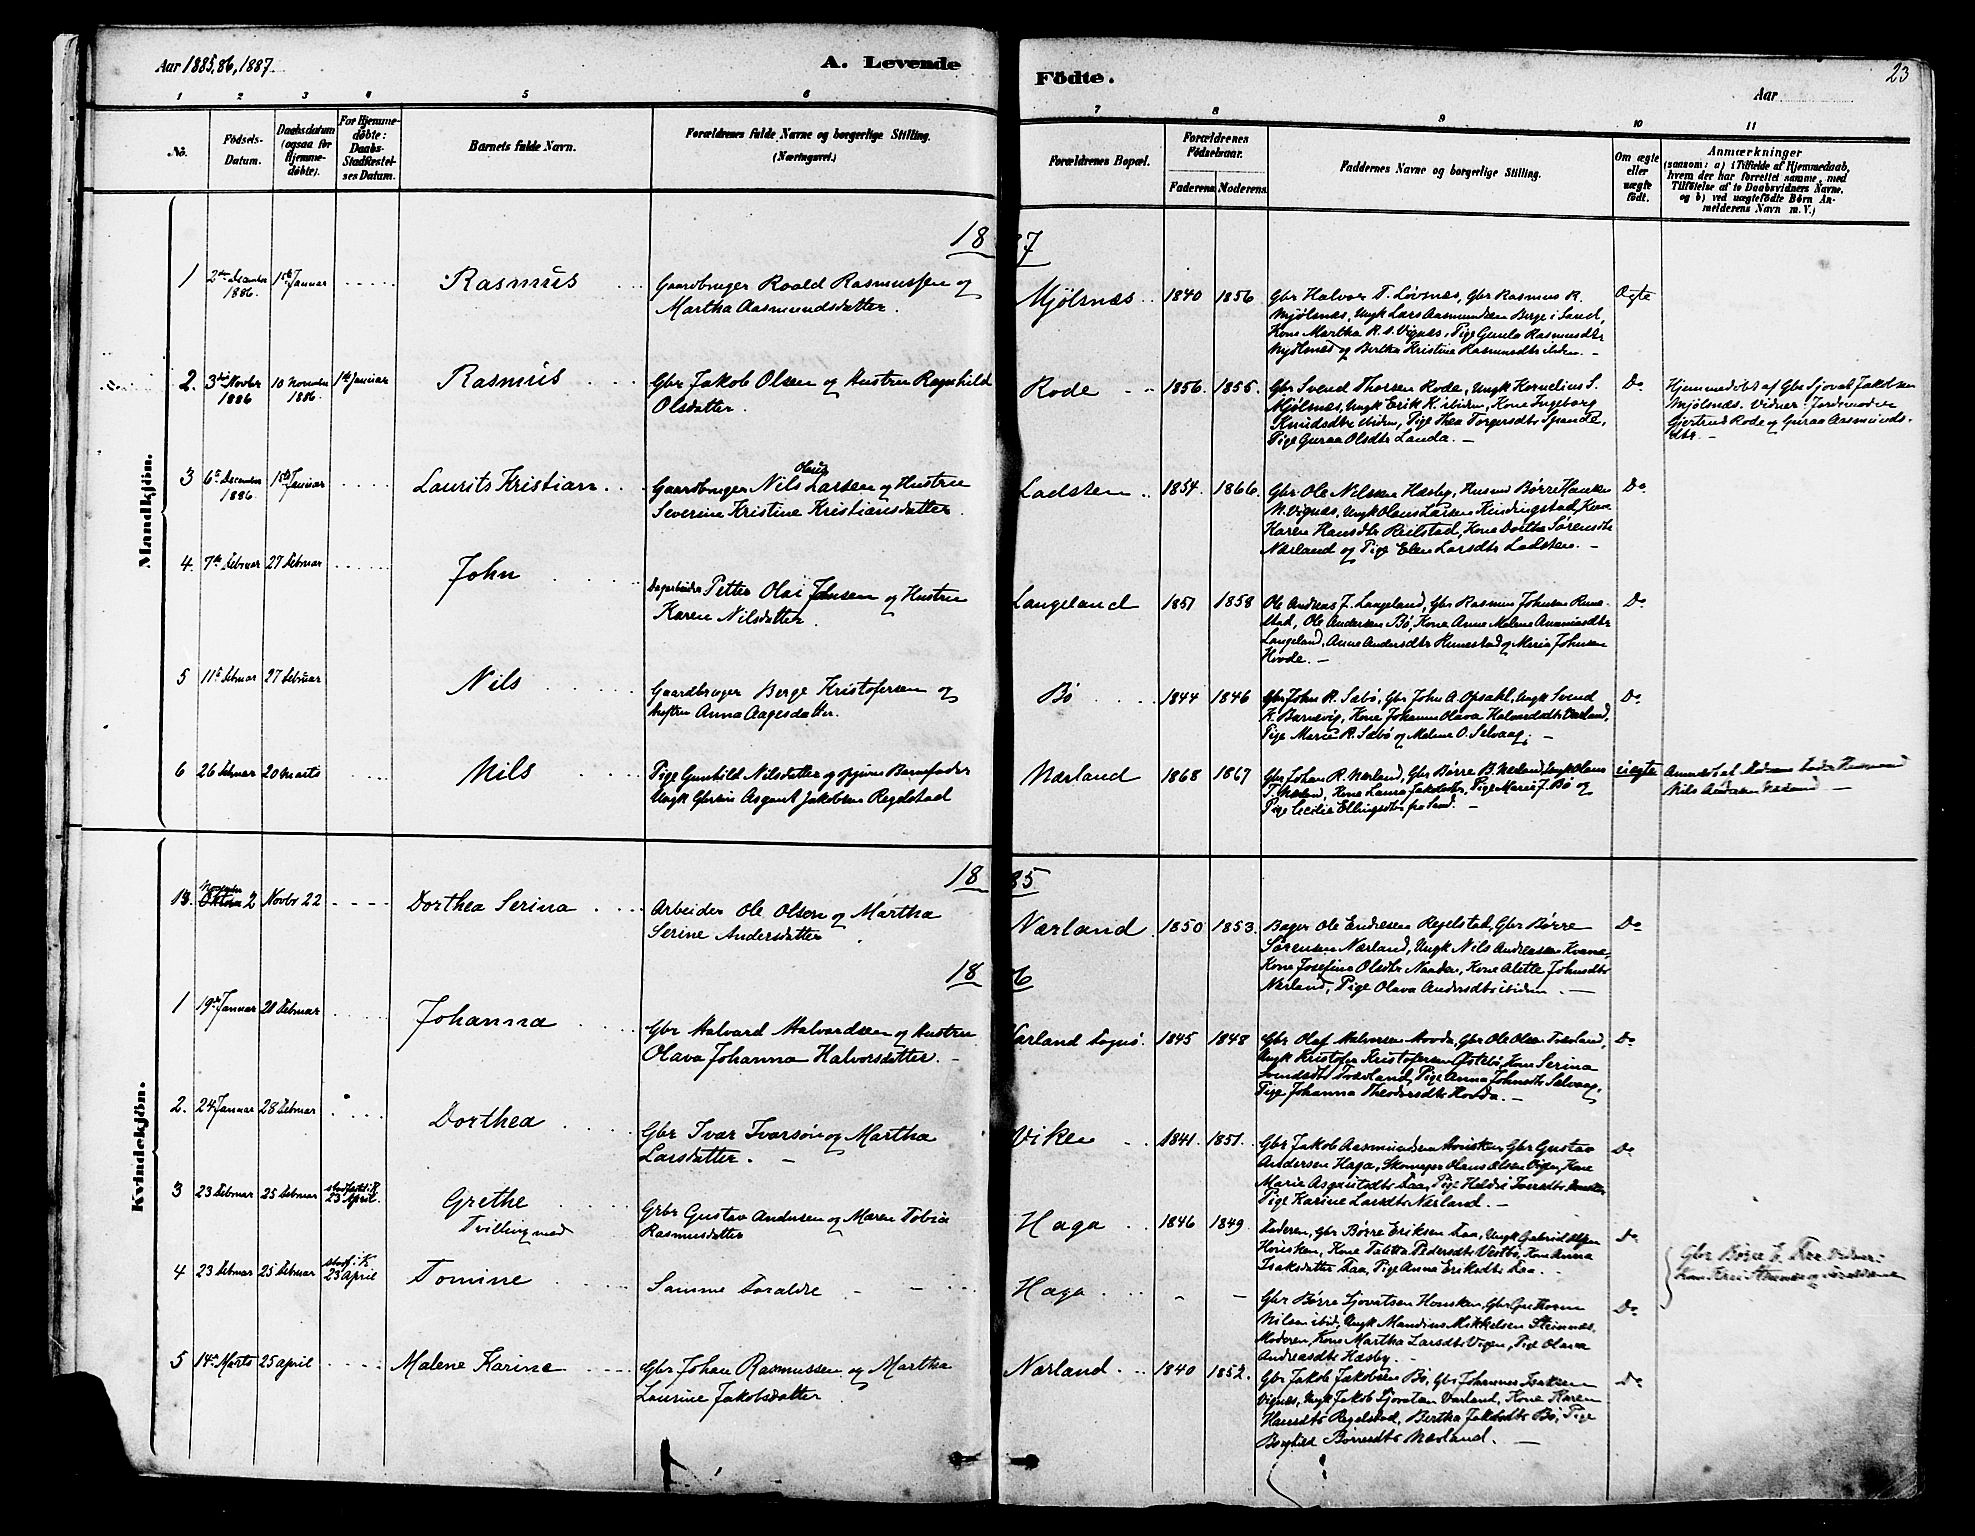 Aar 1885, 86, 1887.
A. Levende
Födte.
Aar
23
1 2 3 4 5 6 7 8 9 10 11
No.
Födsels-
Datum.
Daabsdatum
(ogsaa for
Hjemme-
döbte).
For Hjemme-
döbte:
Daabs-
Stadfæstel-
ses Datum.
Barnets fulde Navn.
Forældrenes fulde Navne og borgerlige Stilling.
(Næringsvei.)
Forældrenes Bopæl.
Forældrenes
Födselsaar.
Faderens. Moderens.
Faddernes Navne og borgerlige Stilling.
Om ægte
eller
uægte
födt.
Anmærkninger
(saasom: a) i Tilfælde af Hjemmedaab,
hvem der har forrettet samme, med
Tilföielse af to Daabsvidners Navne,
og b) ved uægtefödte Börn An-
melderens Navn m. V.)
Mandkjön.
1887
1 2den December 1886. 1ste Januar
Rasmus
Gaardbruger Roald Rasmussen og
Martha Aasmundsdatter.
Mjölsnæs 1840 1856
Gbr Halvor T. Lövnæs, Gbr Rasmus R.
Mjölsnæs, Ungk Lars Aasmundsen Berge i Sand,
Kone Martha R. S. Vignæs, Pige Gunla Rasmusdtr
Mjölsnæs og Bertha Kristine Rasmusdtr ibiden. —
Ægte
2. 3die Novbr 1886 10 November 1886. 1ste Januar
Rasmus
Gbr Jakob Olsen og Hustru Ragnhild
Olsdatter.
Rode 1856. 1855.
Gbr Svend Thorsen Rode, Ungk Kornelius S.
Mjölsnæs, Ungk Erik K. ibiden, Kone Ingeborg
Knudsdtr ibiden, Pige Thea Torgersdtr Spande,
Pige Guraa Olsdtr Landa. —
Do
Hjemmedöbt af Gbr Sjovat Jakobsen
Mjölsnæs. Vidner: Jordemoder
Gjertrud Rode og Guraa Aasmunds-
dtr. —
3 6te December 1886 1ste Januar
Laurits Kristian
Gaardbruger Nils Olaus Larsen og Hustru
Severine Kristine Kristiansdatter.
Ladsten 1854. 1866.
Gbr Ole Nilsen Hæsby, Husmd Börre Hansen
N. Vignæs, Ungk Olaus Larsen Kindingstad, Kone
Karen Hansdtr Reilstad, Kone Dorthe Sörensdtr
Nærland og Pige Elen Larsdtr Ladsten. —
Do
4. 7de Februar 27 Februar
John
Dagarbeider Petter Olai Jonsen og Hustru
Karen Nilsdatter.
Langeland 1851 1858
Ole Andreas J. Langeland, Gbr Rasmus Johnsen Rime-
stad, Ole Andersen Bö, Kone Anne Malene Aanensdtr
Langeland, Anne Andersdtr Rimestad og Maria Johnsen
Hovde. —
Do
5 11te Februar 27 Februar
Nils
Gaardbruger Berge Kristofersen og
Hustru Anna Aagesdatter.
Bö 1844 1846
Gbr John R. Sæbö, Gbr John A. Opsahl, Ungk Svend
K. Barnevig, Kone Johanna Olava Halvorsdtr Værland,
Pige Marie R. Sæbö og Malene O. Selvaag. —
Do
6 26 Februar 20 Marts
Nils
Pige Gunhild Nilsdatter og opgiven Barnefader
Ungk Asgaut Jakobsen Regelstad
Nærland 1868 1867
Gbr Johan R. Nærland, Gbr Börre B. Nærland, Ungk Olaus
T. Nærland, Kone Laura Jakobsdtr, Pige Marie J. Bö og
Pige Cecilie Ellingsdtr fra Sand. —
uægte
Nils Andersen Nærland —
Kvindekjön.
1885
13. November Oktober 2 Novbr 22
Dorthea Serina
Arbeider Ole Olsen og Martha
Serine Andersdatter.
Nærland 1850 1853.
Bager Ole Endresen Regelstad, Gbr Börre
Sörensen Nærland, Ungk Nils Andreassen Kvame,
Kone Josefine Olsdtr Naaden, Kone Alette Johnsdtr
Nærland, Pige Olava Andersdtr ibiden. —
Do
1886
1 19de Januar 28 Februar
Johanna
Gbr Halvard Halvardsen og Hustru
Olava Johanna Halvorsdatter. —
Varland Sogns. 1845 1848
Gbr Olaf Halvorsen Hovda, Gbr Ole Olsen Tveland,
Ungk Kristofer Kristofersen Östebö, Kone Serina
Svendsdtr Tveland, Pige Anna Johnsdtr Selvaag,
Pige Johanna Theodorsdtr Hovda. —
Do
2. 24 Januar 28 Februar
Dorthea
Gbr Ivar Ivarsön og Martha
Larsdatter. —
Viken 1841. 1851.
Gbr Jakob Aasmundsen Honsken, Gbr Gustav
Andersen Haga, Skomager Olaus Olsen Vigen, Kone
Maria Asgautsdtr Laa, Pige Helene Iversdtr Honsken
Pige Karine Larsdtr Nærland. —
Do
3 23 Februar 25 Februar stadfæstet i K. 23 April.
Grethe
Tvilling med
Gbr Gustav Andersen og Maren Tobia
Rasmusdatter
Haga 1846 1849
Faderen, Gbr Börre Eriksen Laa, Ungk Gabriel Olsen
Honsken, Kone Talette Pedersdtr Vestbö, Kone Anna
Isaksdatter Laa, Pige Anna Eriksdtr Laa. —
Do
Gbr Börre E. Laa
4 23 Februar 25 Februar stadf. i K. 23 April
Tomine
Samme Foraldre — —
Haga — —
Gbr Börre Sjovatsen Honsken, Gbr Guthorm
Nilsen ibid, Ungk Mandius Mikkelsen Steinnæs,
Moderen, Kone Martha Larsdtr Vigen, Pige Olava
Andreasdtr Hæsby. —
Do
5 14de Marts 25 April
Malene Karine
Gbr Johan Rasmussen og Martha
Laurine Jakobsdatter.
Nærland 1840 1852.
Gbr Jakob Jakobsen Bö, Gbr Johannes Isaksen
Vignæs, Ungk Jakob Sjovatsen Varland, Kone Karen
Hansdtr Regelstad, Bertha Jakobsdtr Bö, Pige
Boghild Börresdtr Nærland. —
Do